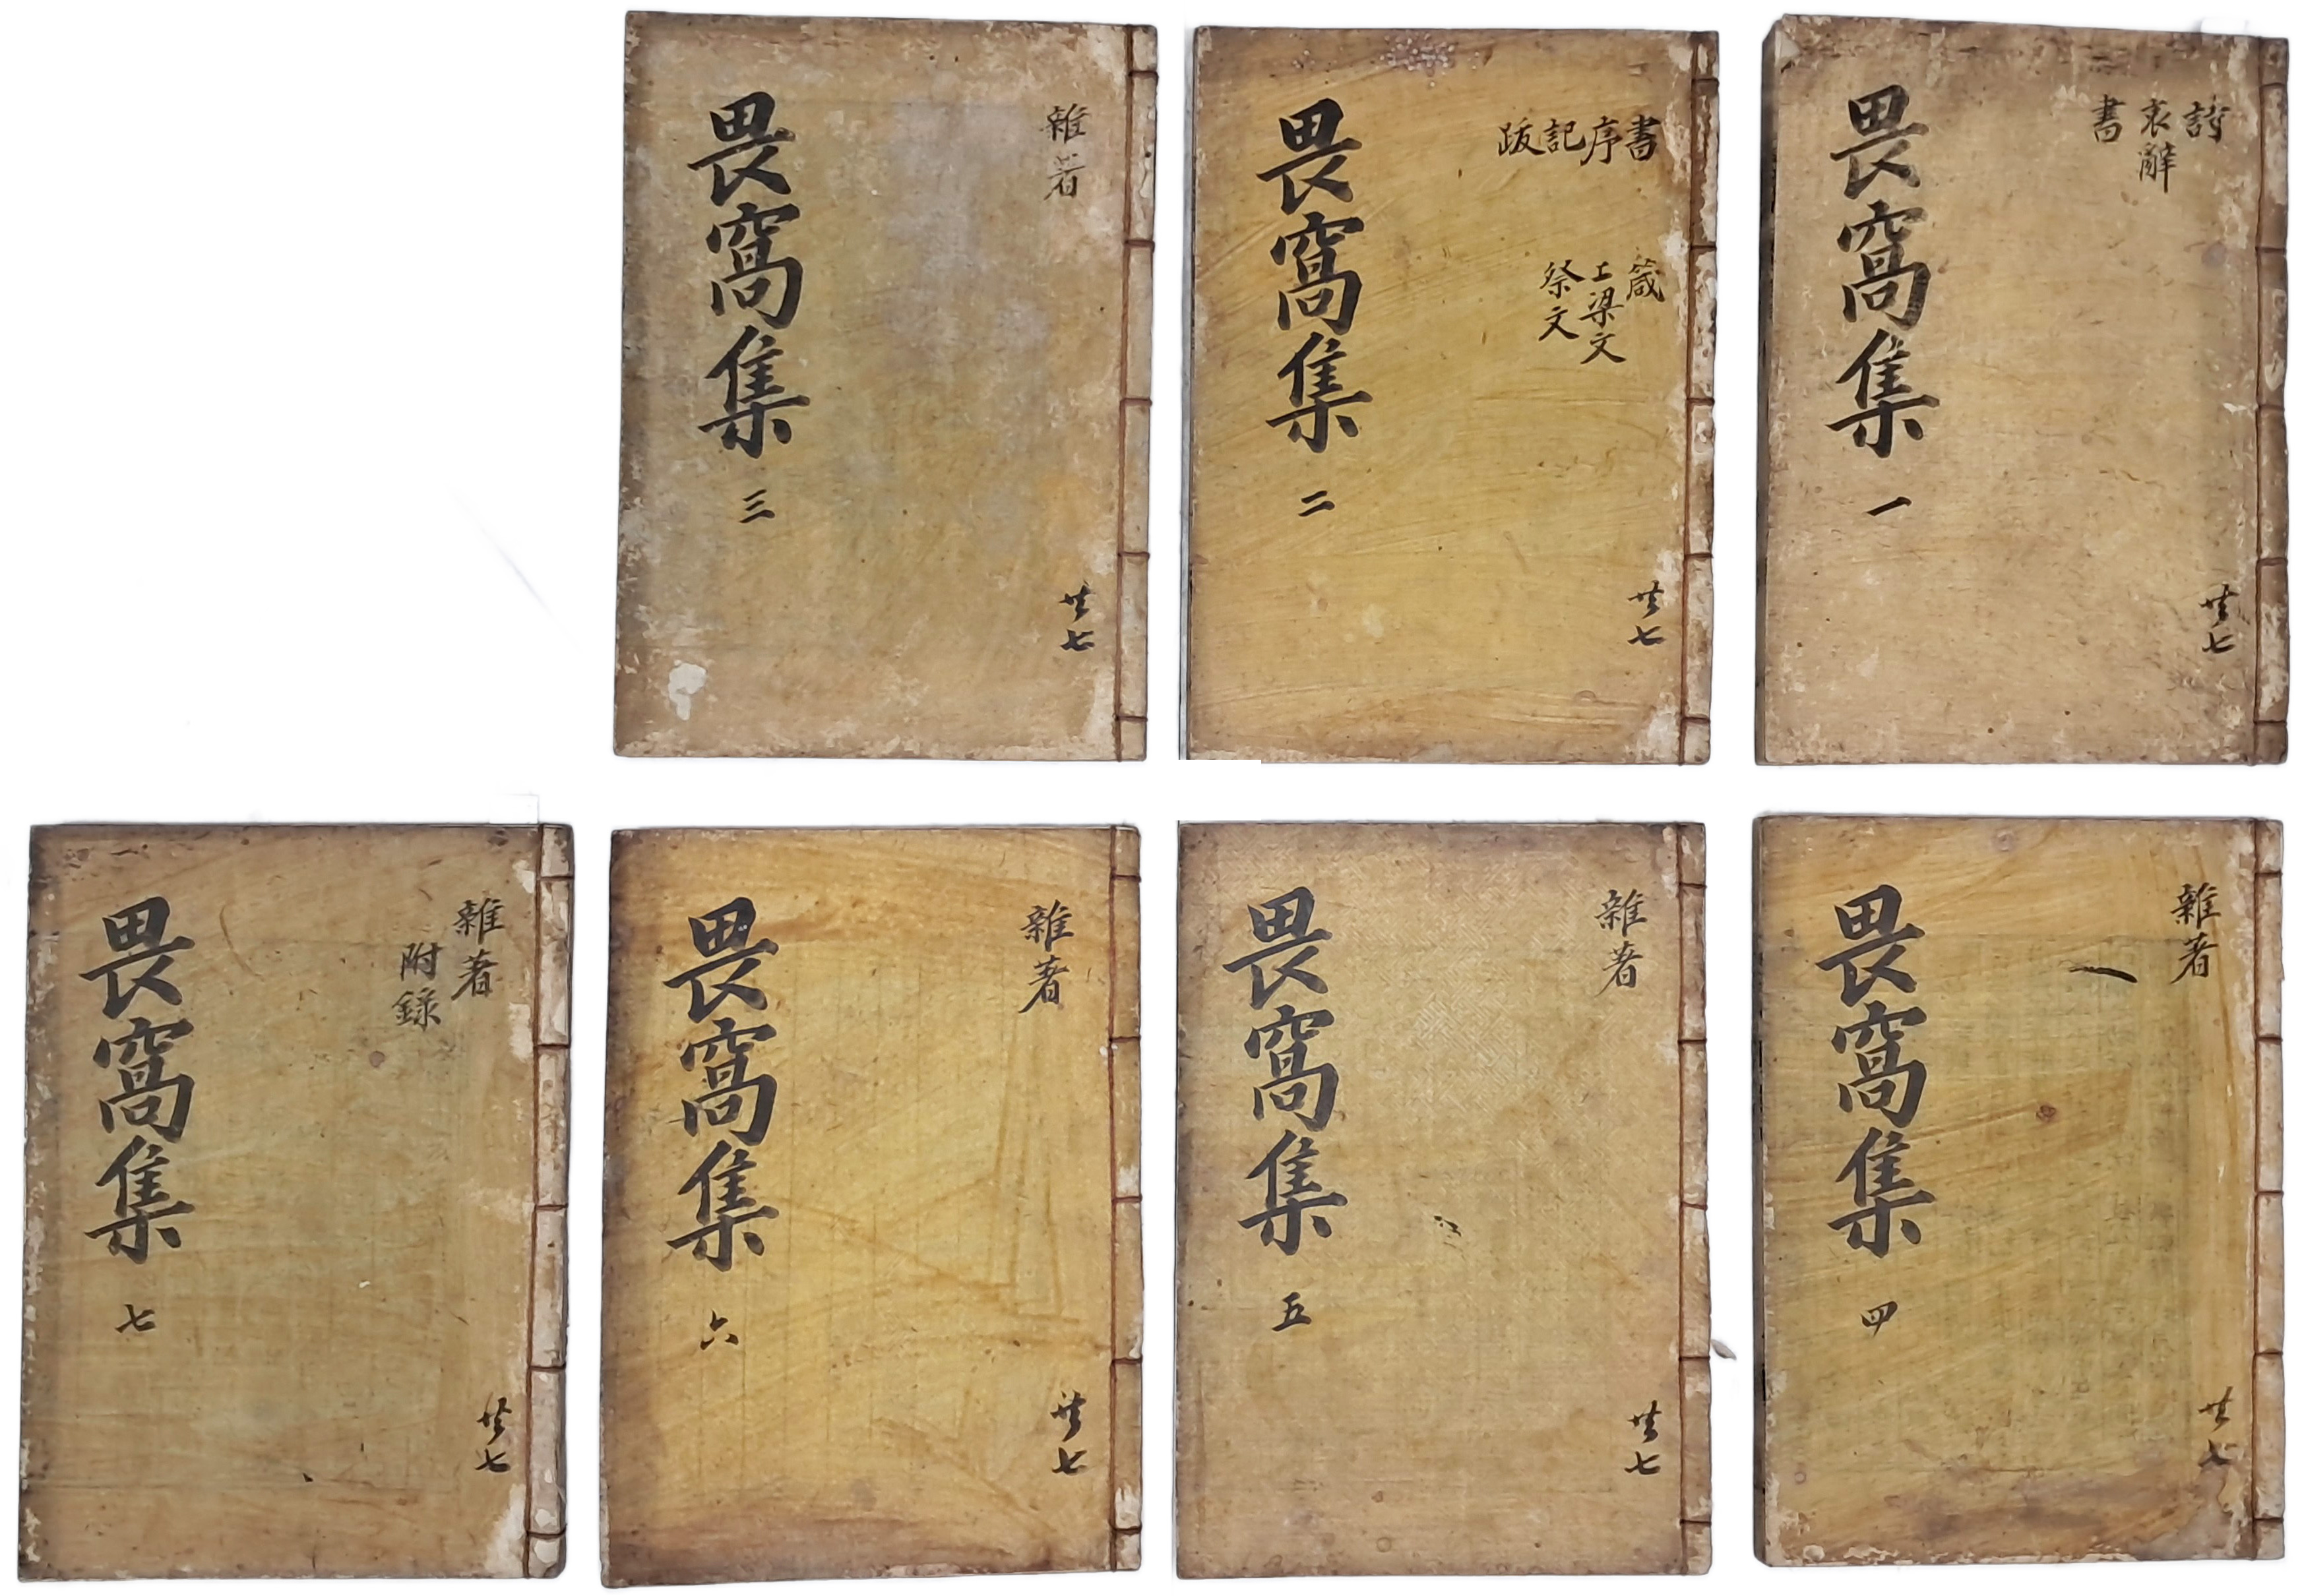 詩
哀辭
書
畏窩集 一
共七
書序記跋
箴
上梁文
祭文
畏窩集 二
共七
雜著
畏窩集 三
共七
雜著
畏窩集 四
共七
雜著
畏窩集 五
共七
雜著
畏窩集 六
共七
雜著
附錄
畏窩集 七
共七